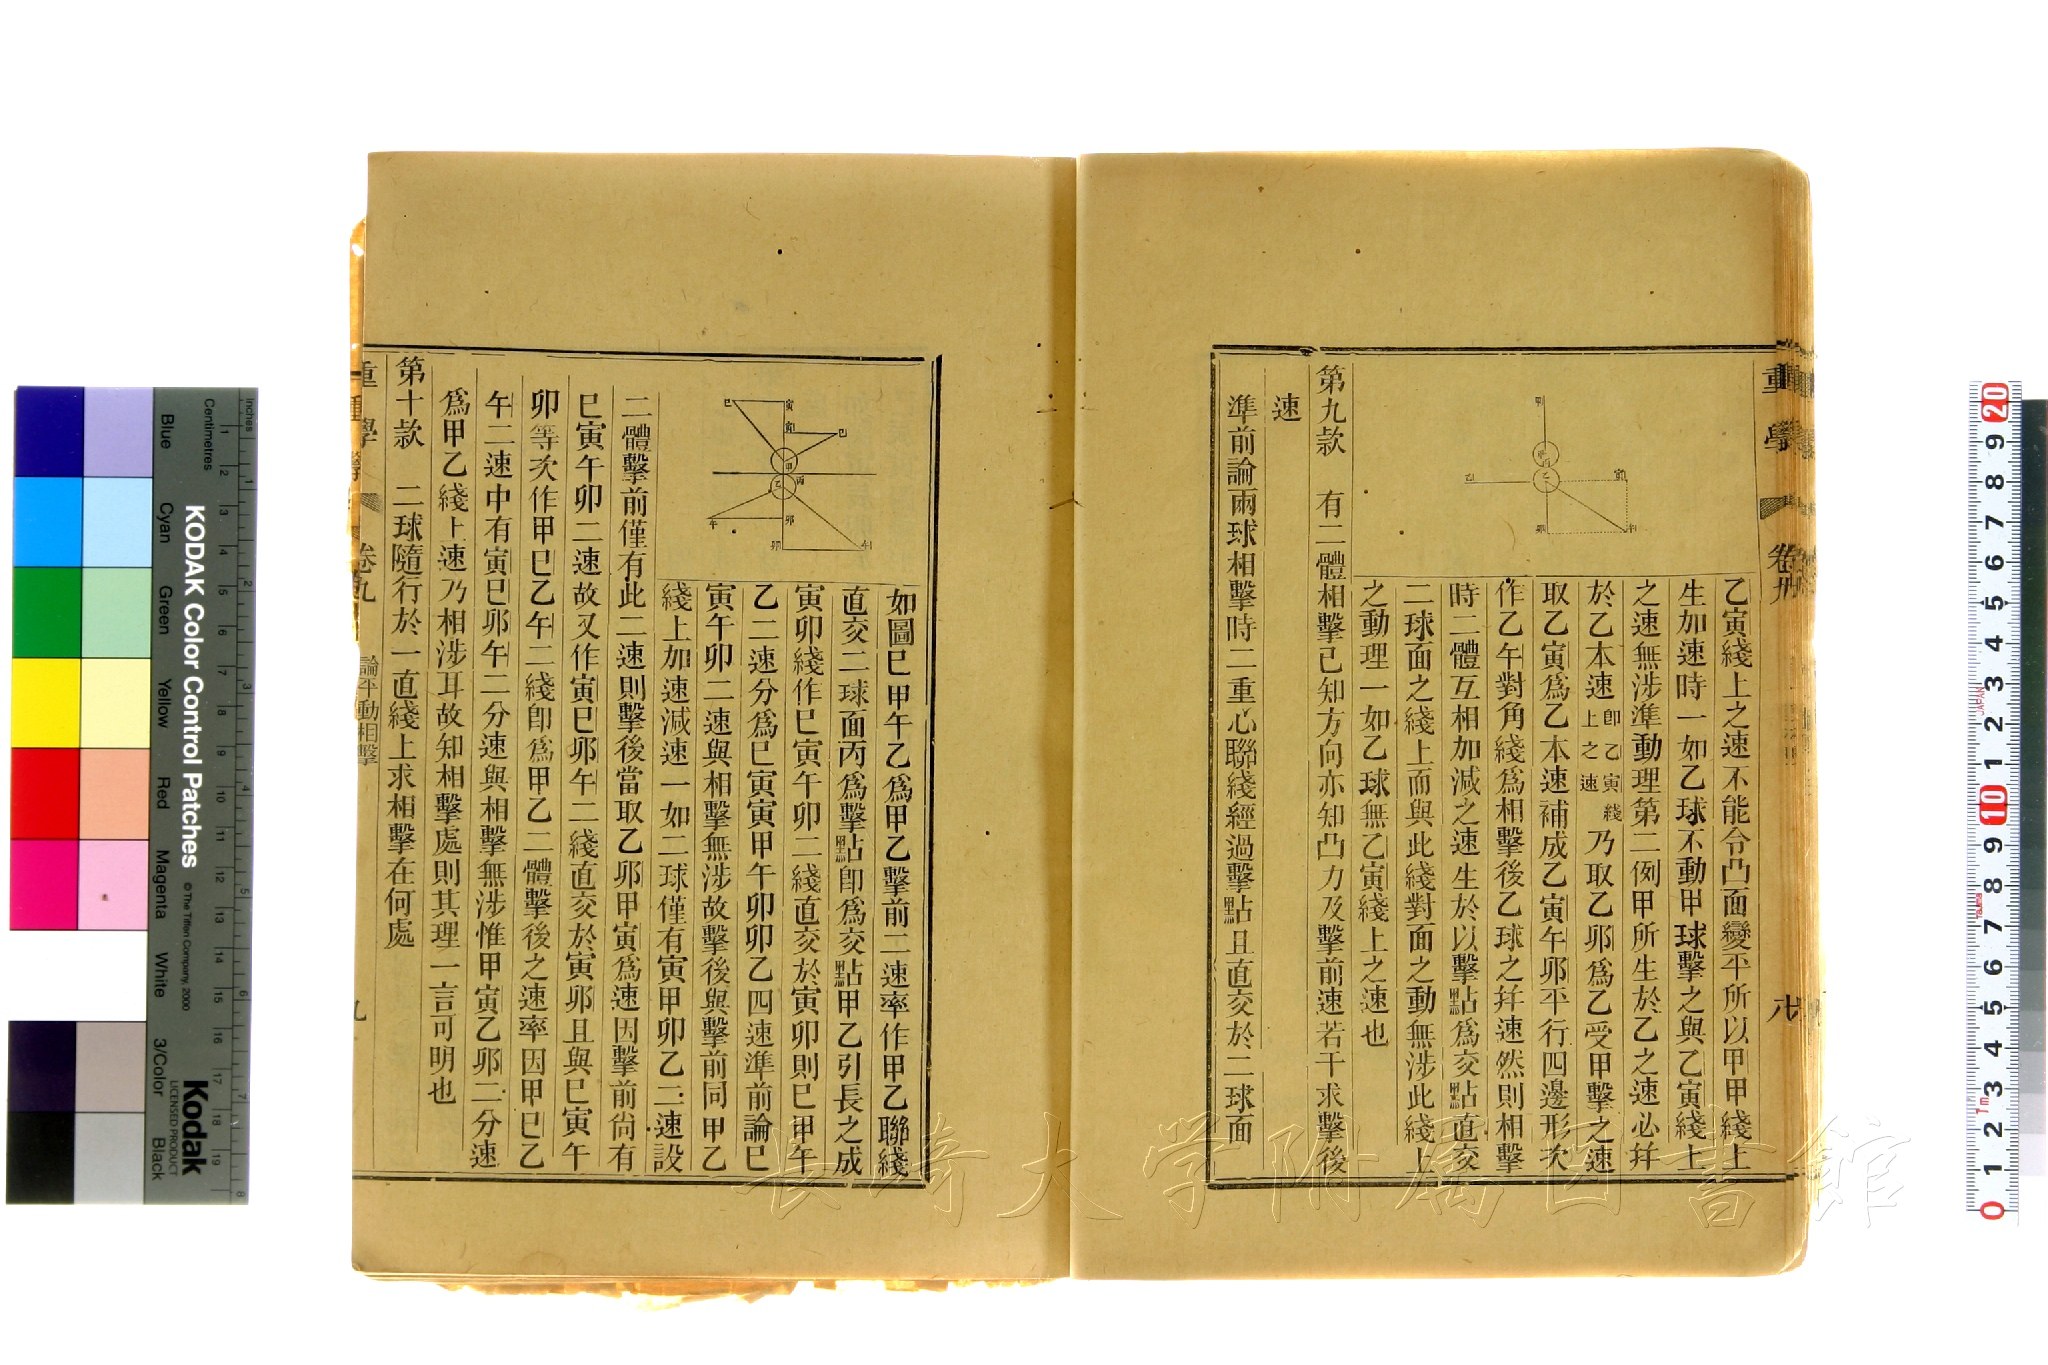 乙寅綫上之速不能令凸面變平所以甲甲綫上
生加速時一如乙球不動甲球擊之與乙寅綫上
之速無涉準動理第二例甲所生於乙之速必幷
於乙本速卽乙寅綫上之速乃取乙卯爲乙受甲擊之速
取乙寅爲乙本速補成乙寅午卯平行四邊形次
作乙午對角綫爲相擊後乙球之幷速然則相擊
時二體互相加減之速生於以擊點爲交點直交
二球面之綫上而與此綫對面之動無涉此綫上
之動理一如乙球無乙寅綫上之速也
第九款　有二體相擊已知方向亦知凸力及擊前速若干求擊後
速
準前論兩球相擊時二重心聯綫經過擊點且直交於二球面
重學
如圖巳甲午乙爲甲乙擊前二速率作甲乙聯綫
直交二球面丙爲擊點卽爲交點甲乙引長之成
寅卯綫作巳寅午卯二綫直交於寅卯則巳甲午
乙二速分爲巳寅寅甲午卯卯乙四速準前論巳
寅午卯二速與相擊無涉故擊後與擊前同甲乙
綫上加速減速一如二球僅有寅甲卯乙二速設
二體擊前僅有此二速則擊後當取乙卯甲寅爲速因擊前尙有
巳寅午卯二速故又作寅巳卯午二綫直交於寅卯且與巳寅午
卯等次作甲巳乙午二綫卽爲甲乙二體擊後之速率因甲巳乙
午二速中有寅巳卯午二分速與相擊無涉惟甲寅乙卯二分速
爲甲乙綫上速乃相涉耳故知相擊處則其理一言可明也
第十款　二球隨行於一直綫上求相擊在何處
卷九　論平動相擊
KODAK Color Control Patches
© The Tiffen Company, 2000
Kodak
LICENSED PRODUCT
Inches
Centimetres
Blue Cyan Green Yellow Red Magenta White 3/Color Black
長崎大学附属図書館
JAPAN